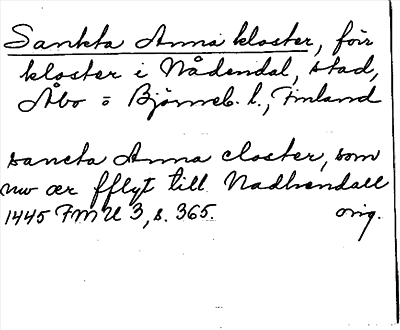 Sankta Anna kloster, förr
kloster i Nådendal, stad,
Åbo o Björneb. l., Finland
sancta Anna closter, som
nw ær fflyt till Nadhendall
1445 FMU 3, s. 365. orig.